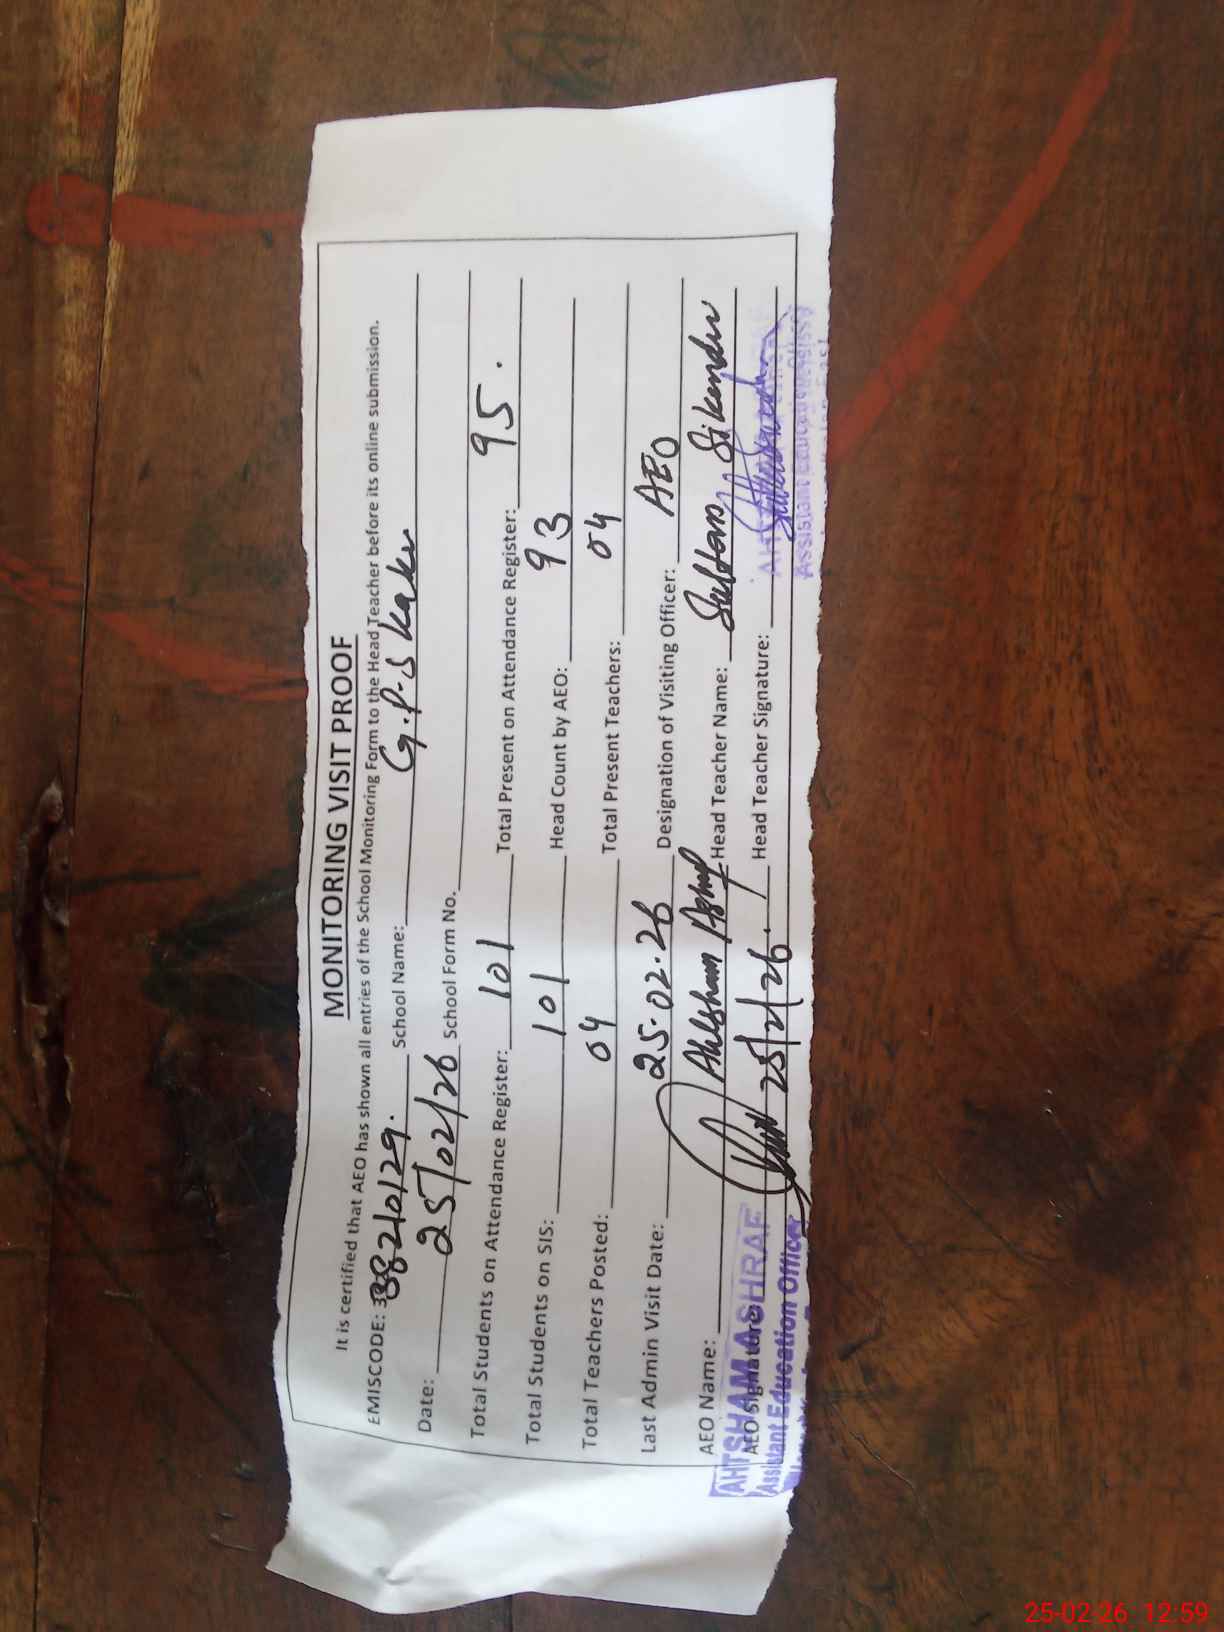 MONITORING VISIT PROOF
It is certified that AEO has shown all entries of the School Monitoring Form to the Head Teacher before its online submission.
EMISCODE: 38210129. School Name: G.P.S Kaker
Date: 25/02/26 School Form No.
Total Students on Attendance Register: 101 Total Present on Attendance Register: 95.
Total Students on SIS: 101 Head Count by AEO: 93
Total Teachers Posted: 04 Total Present Teachers: 04
Last Admin Visit Date: 25.02.26 Designation of Visiting Officer: AEO
AEO Name: Ahtsham Ashraf Head Teacher Name: Sikander
AEO Signature: 25/2/26. Head Teacher Signature:
AHTSHAM ASHRAF
Assistant Education Officer
Assistant Education Officer
25-02-26 12:59